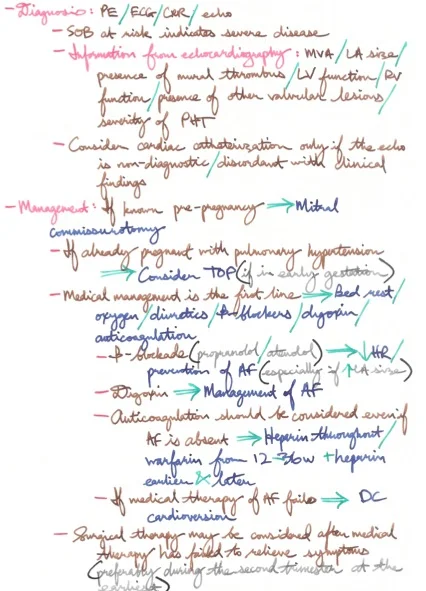 - Diagnosis: PE / ECG / CXR / echo
- SOB at risk indicates severe disease
- Information from echocardiography: MVA / LA size /
presence of mural thrombus / LV function / RV
function / presence of other valvular lesions /
severity of PHT
- Consider cardiac catheterization only if the echo
is non-diagnostic / discordant with clinical
findings
- Management: If known pre-pregnancy → Mitral
commissurotomy
- If already pregnant with pulmonary hypertension
→ Consider TOP (if in early gestation)
- Medical management is the first line → Bed rest /
oxygen / diuretics / β-blockers / digoxin /
anticoagulation
- β-blockade (propranolol / atenolol) → ↓HR /
prevention of AF (especially if ↑LA size)
- Digoxin → Management of AF
- Anticoagulation should be considered even if
AF is absent → Heparin throughout /
warfarin from 12-36w + heparin
earlier & later
- If medical therapy of AF fails → DC
cardioversion
- Surgical therapy may be considered after medical
therapy has failed to relieve symptoms
(preferably during the second trimester at the
earliest)